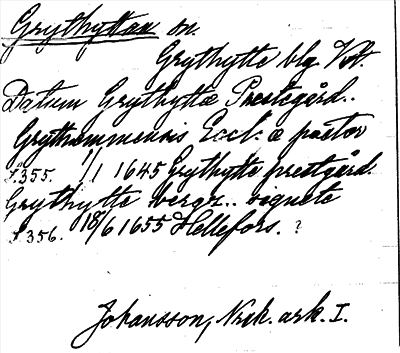 Grythyttan sn.
Grythytte blg Vstm.
Datum Grythyttæ Prestegård..
Grythemmensis Eccl: æ pastor
s.355. 1/1 1645 Grythytte prestgård.
Grythytte bergz.. signete
s.356. 18/6 1655 Hellefors. ?
Johansson, Nrk. ark. I.